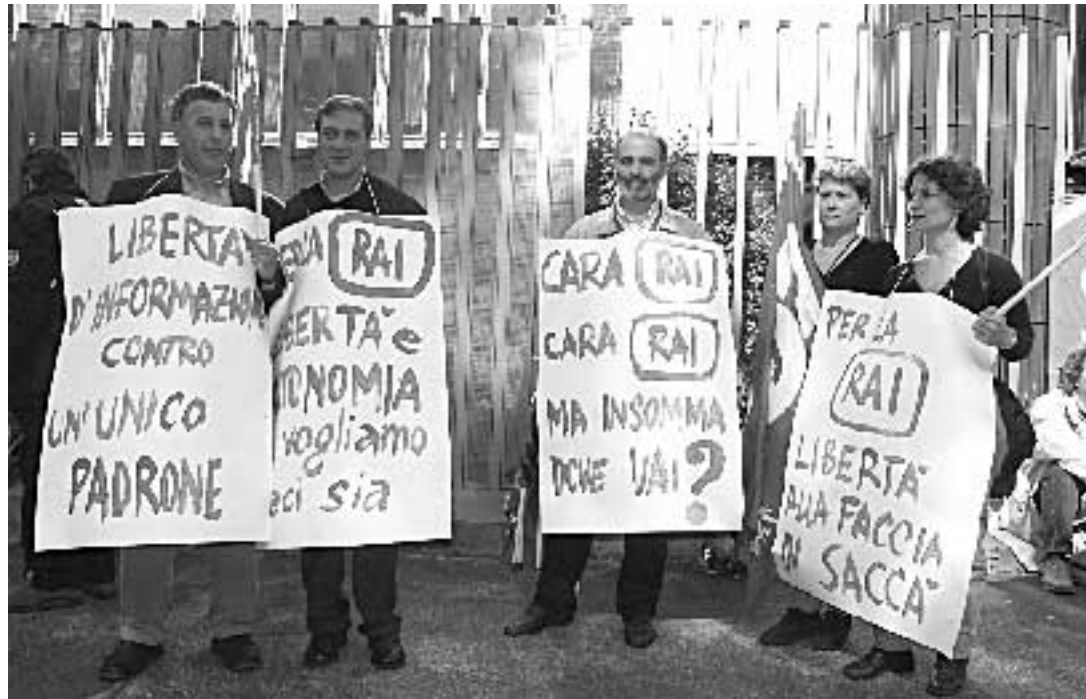 LIBERTA'
D'INFORMAZIONE
CONTRO
UN'UNICO
PADRONE
RAI
BERTA' e
TONOMIA
vogliamo
ci sia
CARA RAI
CARA RAI
MA INSOMMA
DOVE VAI?
PER LA
RAI
LIBERTA'
ALLA FACCIA
DI SACCA'